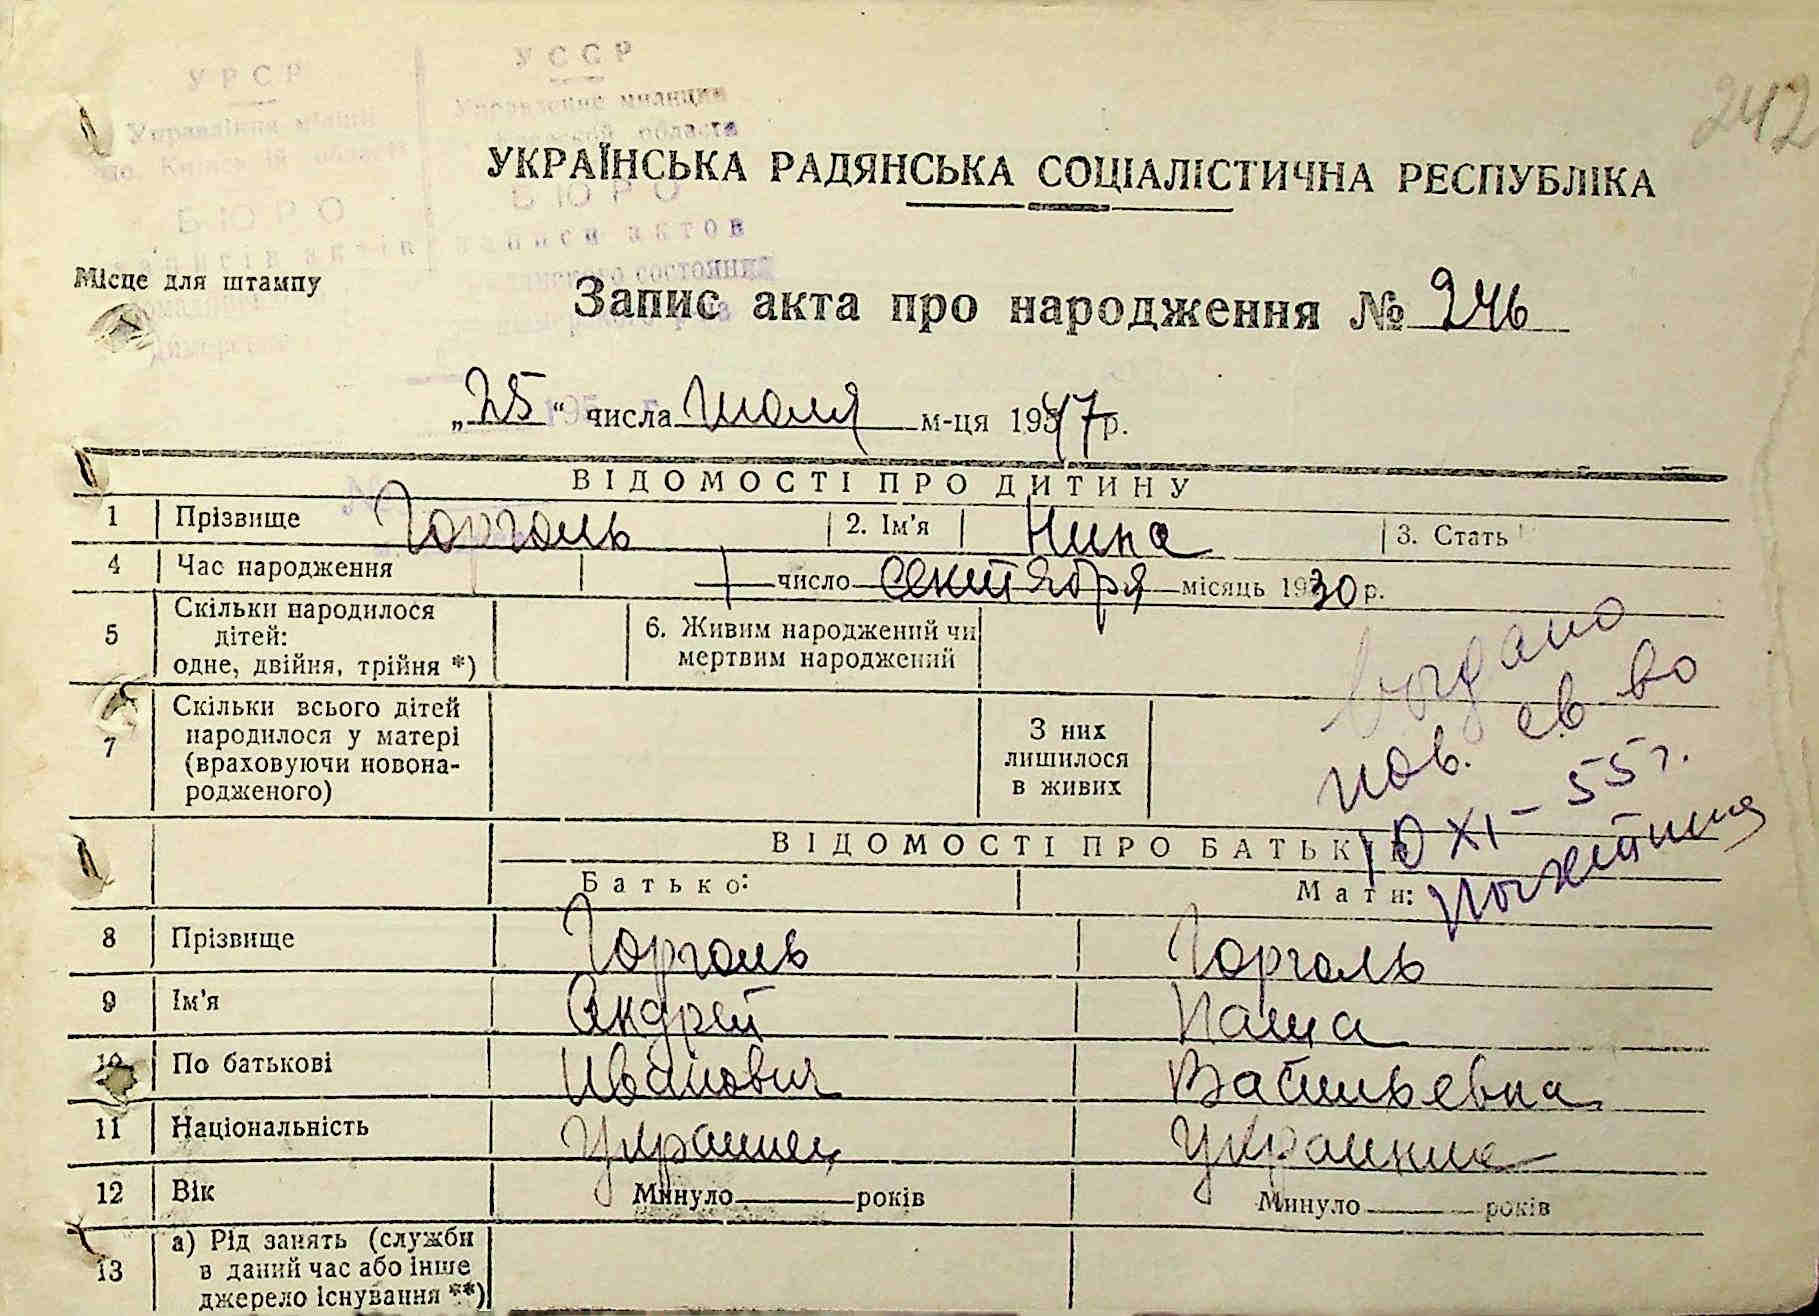 242
УРСР
УССР
Управління міліції
Управление милиции
по Київській області
области
БЮРО
БЮРО
записів актів
записи актов
состояния
УКРАЇНСЬКА РАДЯНСЬКА СОЦІАЛІСТИЧНА РЕСПУБЛІКА
Місце для штампу
Запис акта про народження № 246
„25“ числа июля м-ця 1947 р.
ВІДОМОСТІ ПРО ДИТИНУ
1 Прізвище Горголь 2. Ім'я Нина 3. Стать
4 Час народження 1 число сентября місяць 1930 р.
5 Скільки народилося дітей: одне, двійня, трійня *) 6. Живим народжений чи мертвим народжений
7 Скільки всього дітей народилося у матері (враховуючи новонародженого) З них лишилося в живих
выдано
пов. св-во
10 XI – 55 г.
ВІДОМОСТІ ПРО БАТЬКІВ
Батько: Мати:
8 Прізвище Горголь Горголь
9 Ім'я Андрей Паша
10 По батькові Иванович Васильевна
11 Національність Украинец Украинка
12 Вік Минуло ___ років Минуло ___ років
13 а) Рід занять (служби в даний час або інше джерело існування **)